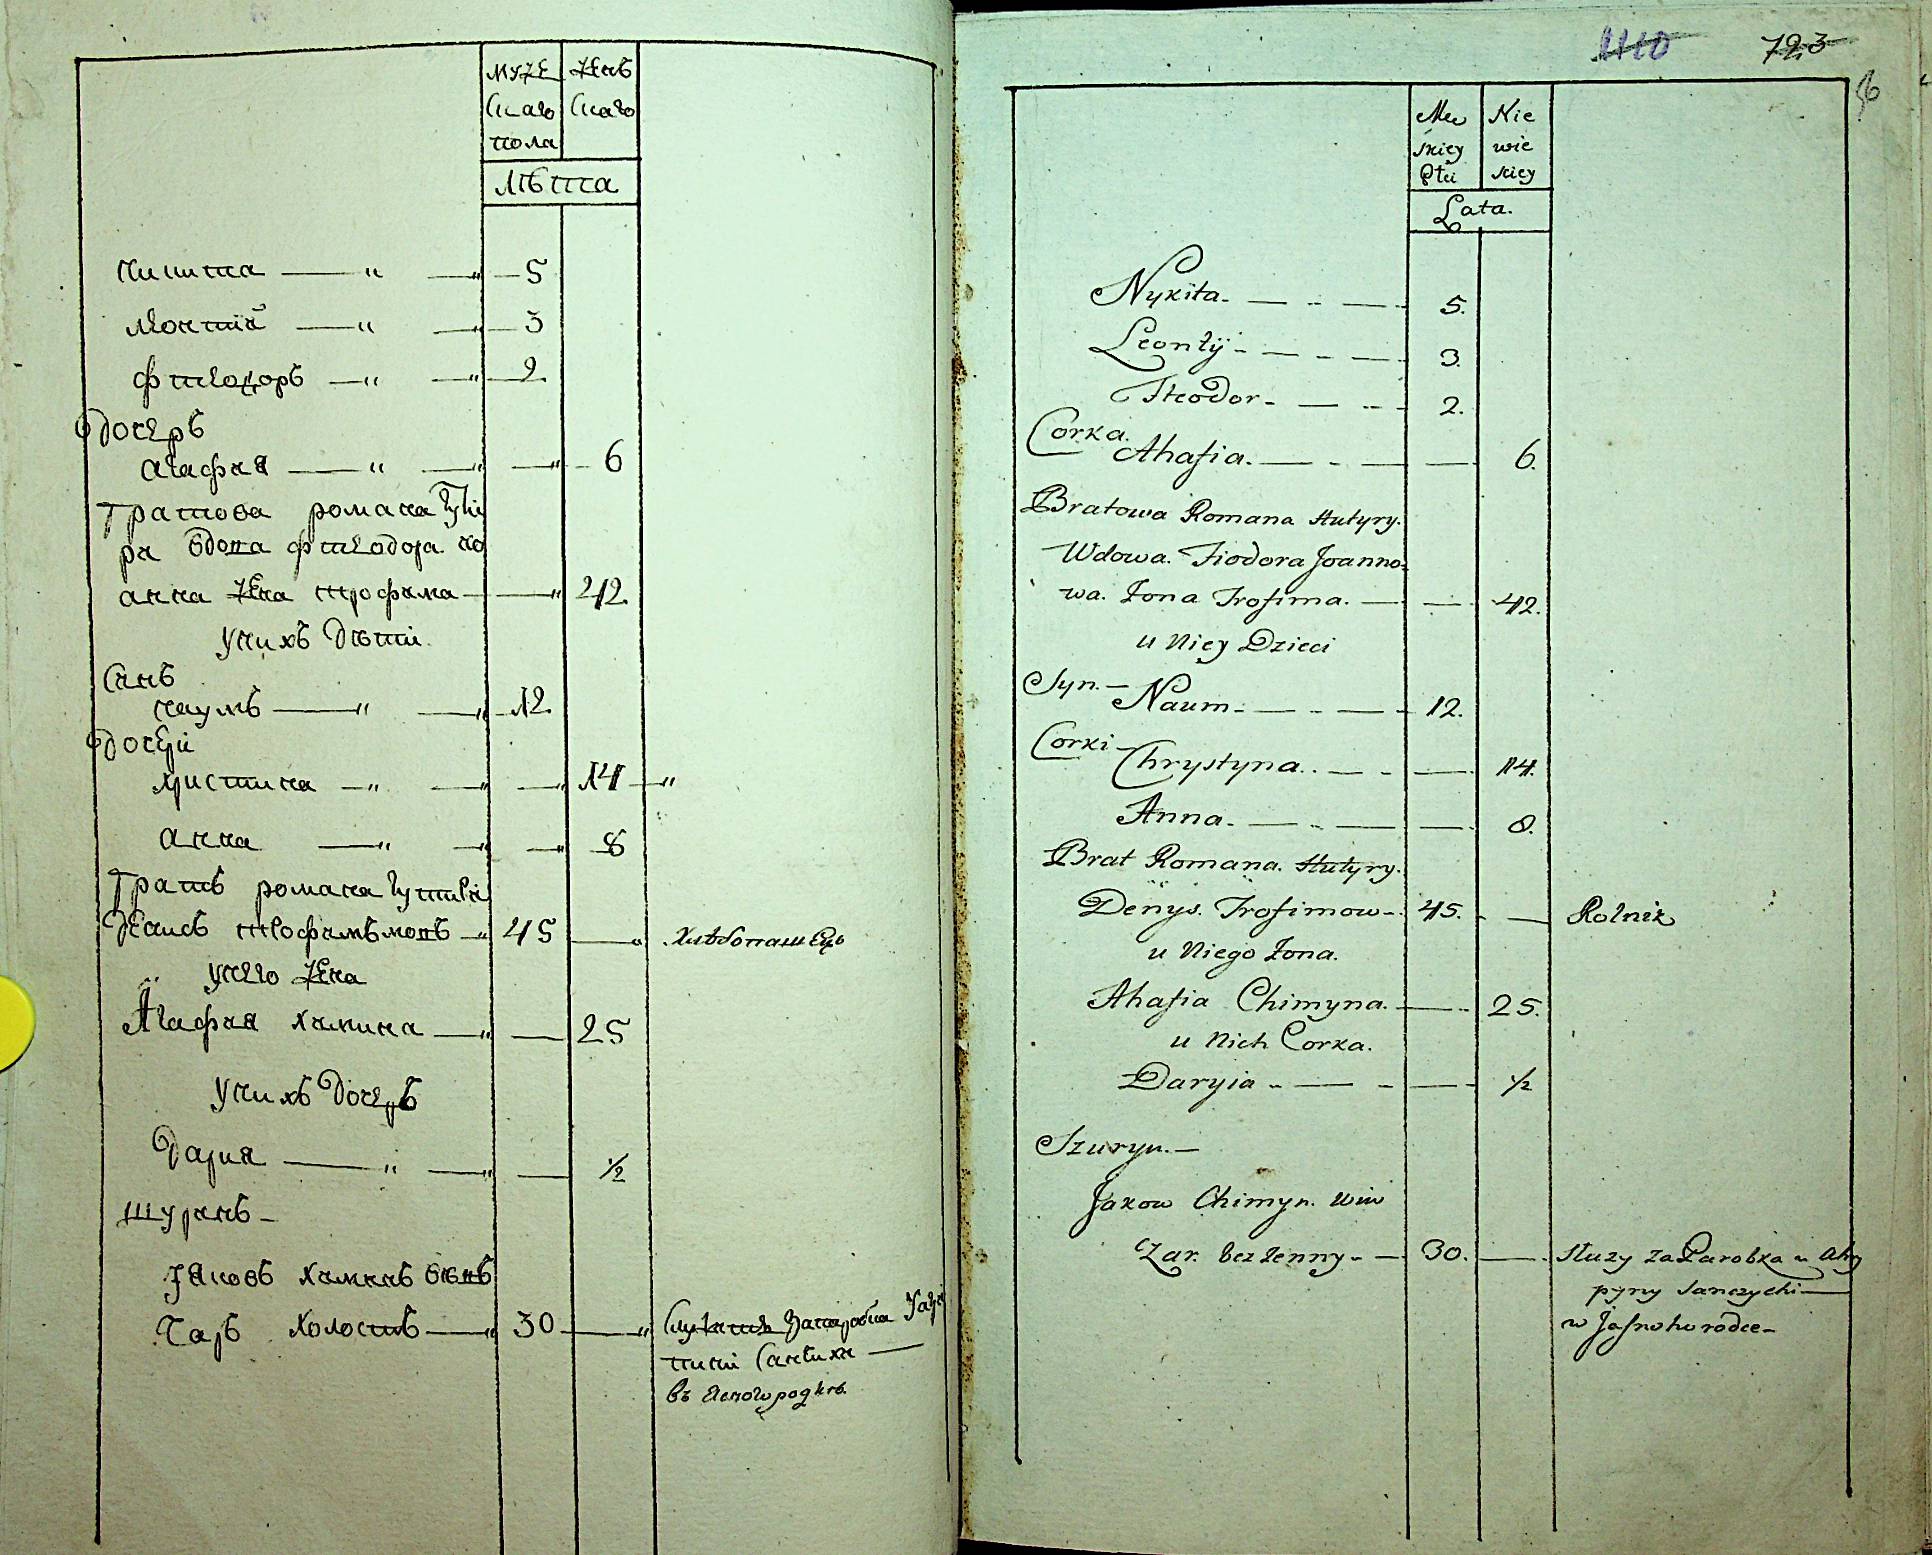 муже женс
скаго скаго
пола
лѣта
Никита — „ — „ — 5
Леонтій — „ — „ — 3
Фтеодоръ — „ — „ — 2
Дочерь
Агафия — „ — „ — „ — 6
Братова романа
вдова фтеодора ио
анна жена трофима — — „ 42
у них дѣти
Синъ
Наумъ — „ — „ — 12
Дочери
христина — „ — „ — „ 14 — „
анна — „ — „ — „ 8
Братъ романа
Денисъ 45 — Хлѣбопашецъ
у него жена
Агафия химина — „ — 25
у нихъ дочерь
Дария — „ — „ — 1/2
шуринъ —
Яковъ химинъ вин
чаръ холостъ — „ 30 — „ Служитъ за паробка у аги
пини Санчихи —
въ ясногородкѣ
1110 723
56
Mę Nie
skiey wie
Płci skiey
Lata.
Nykita. — - — 5.
Leontÿ - — - — 3.
Theodor - — - - 2.
Corka.
Ahafia. — - — — 6.
Bratowa Romana Hutyry.
Wdowa. Fiodora Joanno-
wa. Żona Trofima. — — 42.
u Niey Dzieci
Syn. — Naum - — - — 12.
Corki — Chrystyna. . — - — 14.
Anna - — - — — 8.
Brat Romana. Hutyry.
Denys. Trofimow - 45. - — Rolnik
u Niego Żona.
Ahafia Chimyna. — 25.
u Nich Corka.
Daryia - — - — 1/2
Szuryn. —
Jakow Chimyn. Win
Czar. bezżenny - — 30. — służy za Parobka u Ahy
pyny Sanczychi —
w Jasnohorodce —